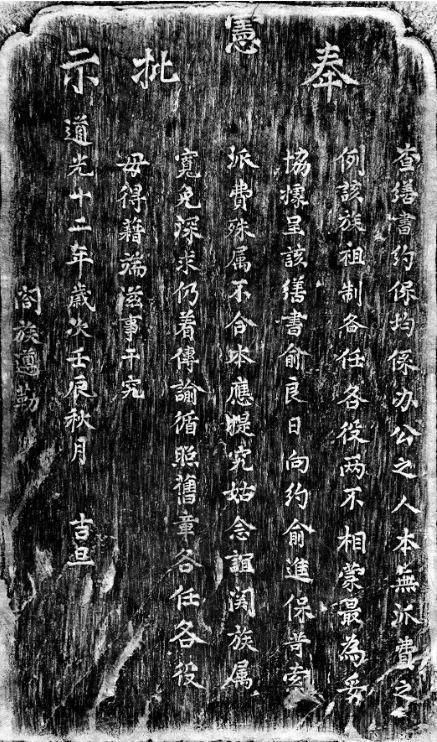 奉憲批示
查繕書約保均係办公之人本無派費之
例該族祖制各任各役两不相蒙最為妥
協據呈該繕書俞良日向約俞進保苛索
派費殊属不合本應提究姑念誼関族属
寬免深求仍着傳諭循照舊章各任各役
毋得藉端滋事干究
道光十二年歲次壬辰秋月 吉旦
闔族遵勒